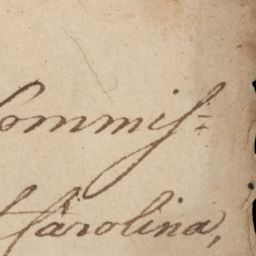 Commiſ=
Carolina,